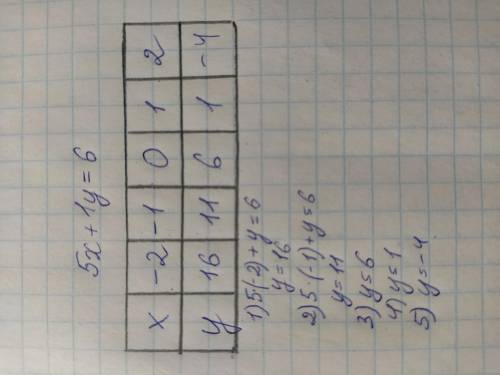 5x + 1y = 6
x -2 -1 0 1 2
y 16 11 6 1 -4
1) 5·(-2) + y = 6
y = 16
2) 5·(-1) + y = 6
y = 11
3) y = 6
4) y = 1
5) y = -4